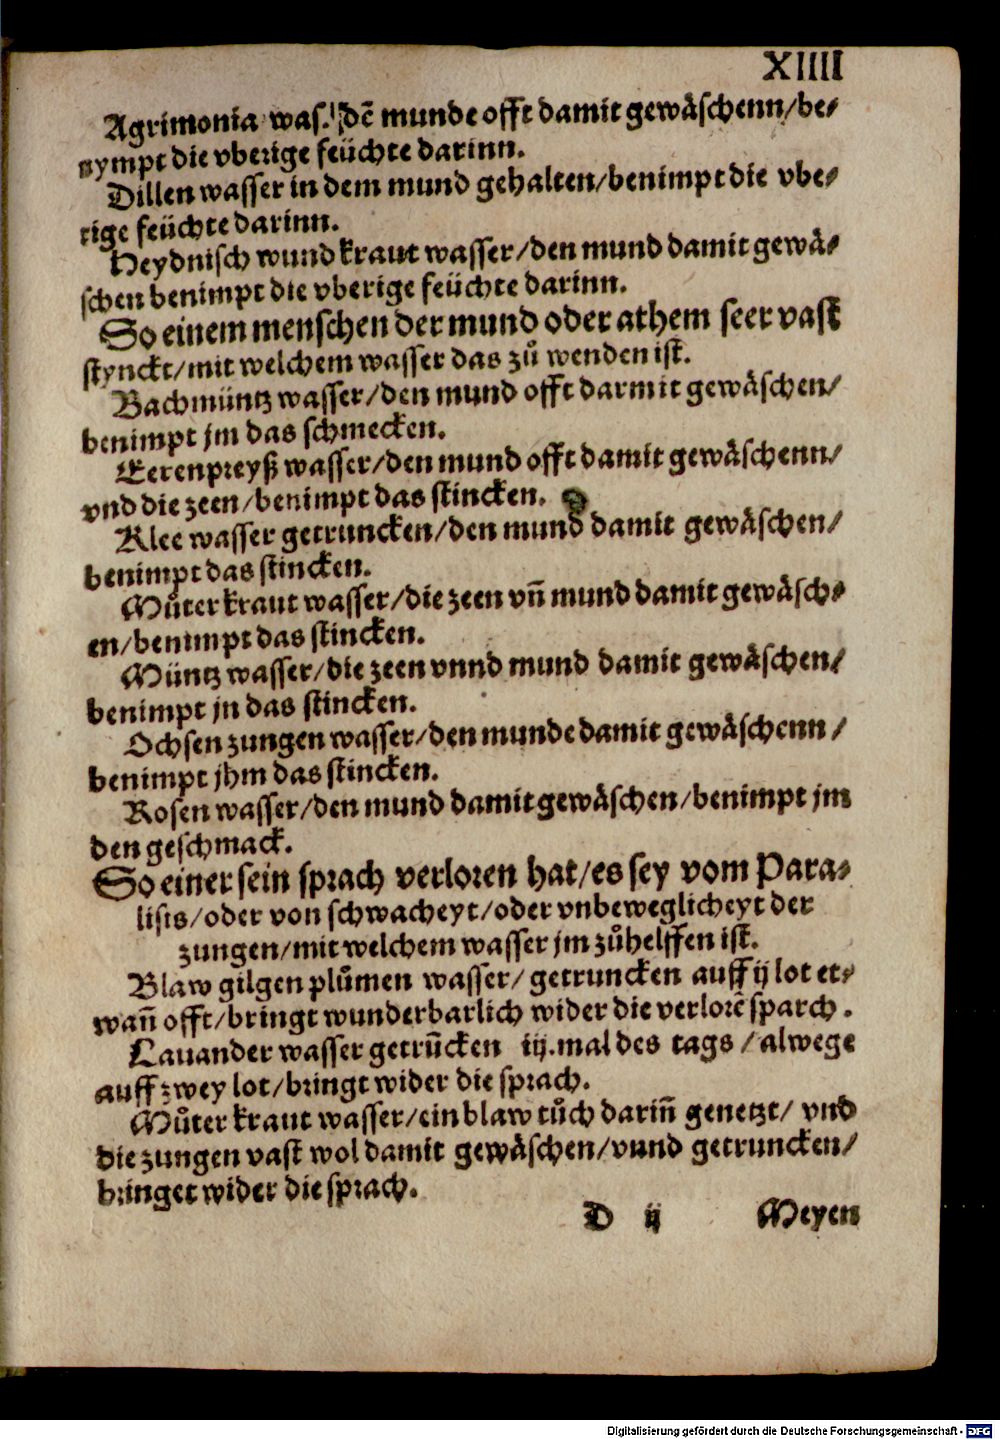 XIIII
Agrimonia was. dē munde offt damit gewåschenn/be⸗
nympt die vberige feüchte darinn.
Dillen wasser in dem mund gehalten/benimpt die vbe⸗
rige feüchte darinn.
Heydnisch wund kraut wasser/den mund damit gewå⸗
schen benimpt die vberige feüchte darinn.
So einem menschen der mund oder athem seer vast
stynckt/mit welchem wasser das zů wenden ist.
Bachmüntz wasser/den mund offt darmit gewåschen/
benimpt jm das schmecken.
Eerenpreyß wasser/den mund offt damit gewåschenn/
vnd die zeen/benimpt das stincken.
Klee wasser getruncken/den mund damit gewåschen/
benimpt das stincken.
Můter kraut wasser/die zeen vñ mund damit gewåsch⸗
en/benimpt das stincken.
Müntz wasser/die zeen vnnd mund damit gewåschen/
benimpt jn das stincken.
Ochsen zungen wasser/den munde damit gewåschenn/
benimpt jhm das stincken.
Rosen wasser/den mund damit gewåschen/benimpt jm
den geschmack.
So einer sein sprach verloren hat/es sey vom Para⸗
lisis/oder von schwacheyt/oder vnbeweglicheyt der
zungen/mit welchem wasser jm zůhelffen ist.
Blaw gilgen plůmen wasser/getruncken auff ij lot et⸗
wañ offt/bringt wunderbarlich wider die verlorē sparch.
Lauander wasser getrũcken iij.mal des tags/alwege
auff zwey lot/bringt wider die sprach.
Můter kraut wasser/ein blaw tůch dariñ genetzt/ vnd
die zungen vast wol damit gewåschen/vnnd getruncken/
bringet wider die sprach.
D ij Meyen
Digitalisierung gefördert durch die Deutsche Forschungsgemeinschaft - DFG